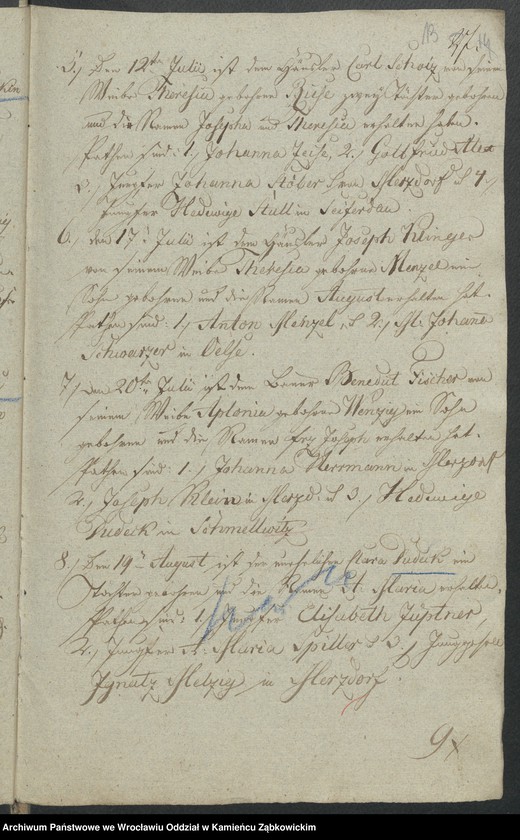 5.) Den 12ten Julii ist dem Häusler Carl Scholz von seinem
Weibe Theresia gebohrne Riese zwey Töchter gebohren
und die Namen Josepha und Theresia erhalten haben.
Pathen sind: 1.) Johanna Zeise, 2.) Gottfried
3.) Jungfer Johanna Stöber von Merzdorf 4.)
Jungfer Hedewige Stull in Seiferdau.
6.) Den 17t Julii ist dem Häusler Joseph Klinger
von seinem Weibe Theresia gebohrne Menzel ein
Sohn gebohren und die Namen August erhalten hat.
Pathen sind: 1.) Anton Menzel, 2.) M. Johanna
Schwarzer in Oelse.
7.) Den 20ten Julii ist dem Bauer Benedict Fischer von
seinem Weibe Aplonia gebohrne Wenzig ein Sohn
gebohren und die Namen Joseph erhalten hat.
Pathen sind: 1.) Johanna Herrmann in Merzdorf
2.) Joseph Klein in Merzd. 3.) Hedewige
Dudeck in Schmellwitz
8.) Den 19ten August ist der Clara Dudeck ein
Tochter gebohren und die Namen A: Maria erhalten.
Pathen sind: 1.) Jungfer Elisabeth Jüptner,
2.) Jungfer A: Maria Spitler 3.) Junggesell
Ignatz Melzig in Merzdorf.
9
Archiwum Państwowe we Wrocławiu Oddział w Kamieńcu Ząbkowickim